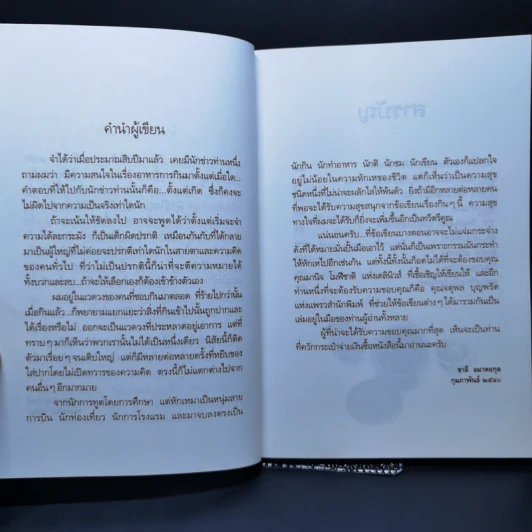 คำนำผู้เขียน
จำได้ว่าเมื่อประมาณสิบปีมาแล้ว เคยมีนักข่าวท่านหนึ่ง
ถามผมว่า มีความสนใจในเรื่องอาหารการกินมาตั้งแต่เมื่อใด...
คำตอบที่ให้ไปกับนักข่าวท่านนั้นก็คือ...ตั้งแต่เกิด ซึ่งก็คงจะ
ไม่ผิดไปจากความเป็นจริงเท่าใดนัก
ถ้าจะเน้นให้ชัดลงไป อาจจะพูดได้ว่าตั้งแต่เริ่มจะจำ
ความได้ละกระมัง ก็เป็นเด็กผิดปรกติ เหมือนกันกับที่ได้กลาย
มาเป็นผู้ใหญ่ที่ไม่ค่อยจะปรกติเท่าใดนักในสายตาและความคิด
ของคนทั่วไป ที่ว่าไม่เป็นปรกตินี้ก็น่าที่จะตีความหมายได้
ทั้งบวกและลบ...ถ้าจะให้เลือกเองก็ต้องเข้าข้างตัวเอง
ผมอยู่ในแวดวงของคนที่ชอบกินมาตลอด ที่ร้ายไปกว่านั้น
เมื่อกินแล้ว...ก็พยายามแยกแยะว่าสิ่งที่กินเข้าไปนั้นถูกปากและ
ได้เรื่องหรือไม่ ออกจะเป็นแวดวงที่ประหลาดอยู่เอาการ แต่ที่
ทราบๆ มาก็เห็นว่าพวกเรานั้นไม่ได้เป็นหนึ่งเดียว นิสัยนี้ก็ติด
ตัวมาเรื่อยๆ จนเติบใหญ่ แต่ก็มีหลายต่อหลายครั้งที่หยิบของ
ใส่ปากโดยไม่เปิดทวารของความคิด ตรงนี้ก็ไม่แตกต่างไปจาก
คนอื่นๆ อีกมากมาย
จากนักการทูตโดยการศึกษา แต่หักเหมาเป็นหนุ่มสาย
การบิน นักท่องเที่ยว นักการโรงแรม และมาจบลงตรงเป็น
นักกิน นักทำอาหาร นักติ นักชม นักเขียน ตัวเองก็แปลกใจ
อยู่ไม่น้อยในความหักเหของชีวิต แต่ก็เห็นว่าเป็นความสุข
ชนิดหนึ่งที่ไม่น่าจะผลักไสให้พ้นตัว ยิ่งถ้ามีอีกหลายต่อหลายคน
ที่พอจะได้รับความสุขสนุกจากข้อเขียนเรื่องกินๆ นี้ ความสุข
ทางใจที่ผมจะได้รับก็ยิ่งจะเพิ่มขึ้นอีกเป็นทวีตรีคูณ
แน่นอนครับ...ที่ข้อเขียนบางตอนอาจจะไม่แจ่มกระจ่าง
ดังที่ได้หมายมั่นปั้นมือเอาไว้ แต่นั่นก็เป็นเพราะกรรมมันกระทำ
ให้หักเหไปอีกเช่นกัน แต่ทั้งนี้ทั้งนั้นก็อดไม่ได้ที่จะต้องขอบคุณ
คุณมานิจ โมฬีชาติ แห่งเดลินิวส์ ที่เชื้อเชิญให้เขียนให้ และอีก
ท่านหนึ่งที่จะต้องรับความขอบคุณก็คือ คุณจตุพล บุญพรัด
แห่งแพรวสำนักพิมพ์ ที่ช่วยให้ข้อเขียนต่างๆ ได้มารวมกันเป็น
เล่มอยู่ในมือของท่านผู้อ่านทั้งหลาย
ผู้ที่น่าจะได้รับความขอบคุณมากที่สุด เห็นจะเป็นท่าน
ที่ควักกระเป๋าจ่ายเงินซื้อหนังสือนี้มาอ่านละครับ
ชาลี อมาตยกุล
กุมภาพันธ์ ๒๕๔๐
สารบัญ